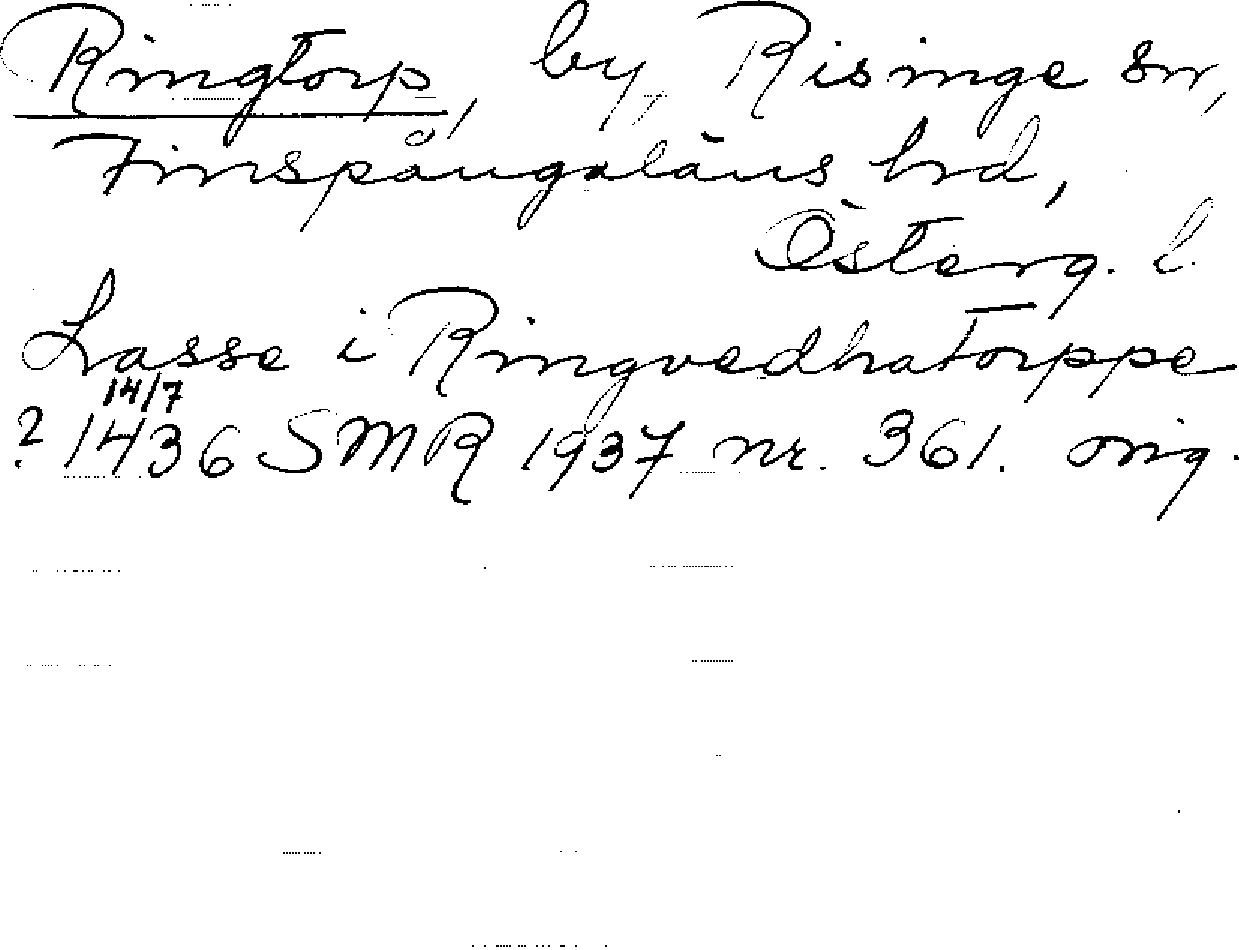 Ringtorp, by, Risinge sn,
Finspångaläns hrd,
Österg. l.
Lasse i Ringvedhatorppe
14/7
? 1436 SMR 1937 nr. 361. orig.